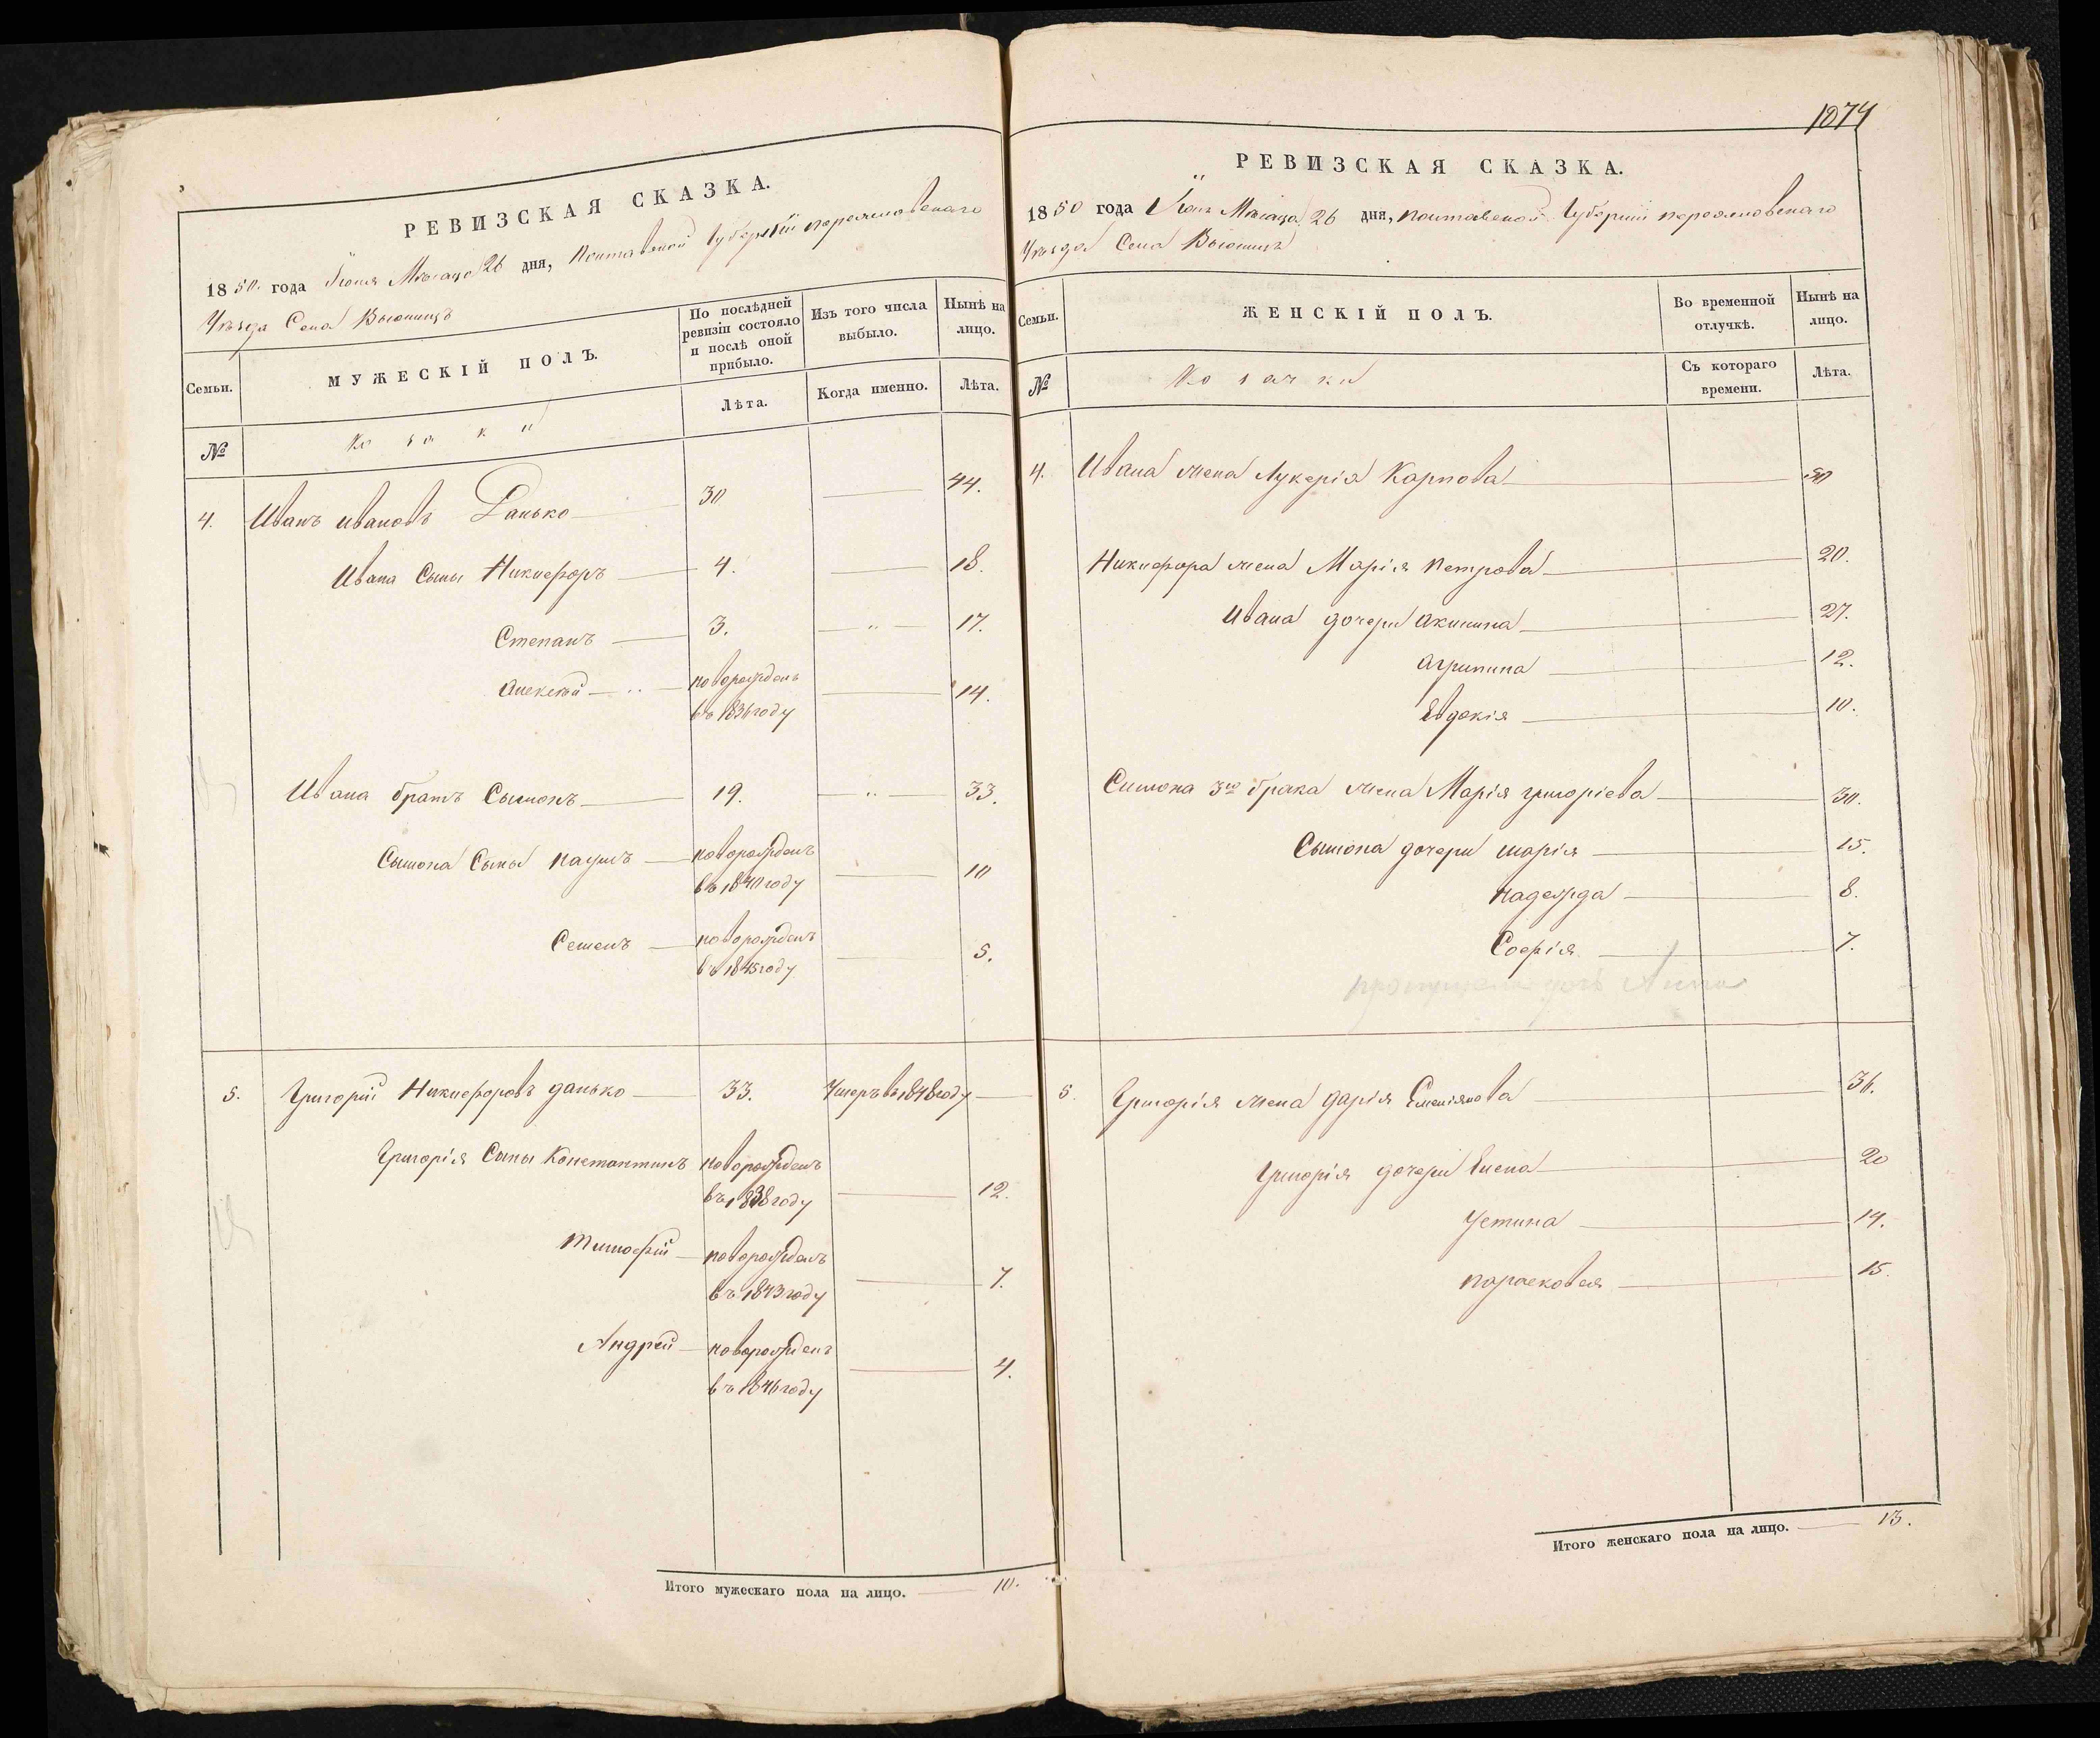 РЕВИЗСКАЯ СКАЗКА.
1850. года Іюня Мѣсяца 26 дня, Полтавской Губерніи переяславскаго
Уѣзда Села Вьюнищъ
Семьи.
МУЖЕСКІЙ ПОЛЪ.
По послѣдней ревизіи состояло и послѣ оной прибыло.
Изъ того числа выбыло.
Нынѣ на лицо.
Лѣта.
Когда именно.
Лѣта.
№
Козаки
4. Иванъ ивановъ Данько 30 44.
Ивана Сыны Никифоръ 4. 18.
Степанъ 3. " 17.
Алексѣй новорожденъ
въ 1836 году 14.
Ивана братъ Сымонъ 19. " 33.
Сымона Сыны новорожденъ
въ 1840 году 10
Семенъ новорожденъ
въ 1845 году 5.
5. Григорій Никифоровъ данько 33. Умеръ въ 1848 году
Григорія Сыны Константинъ новорожденъ
въ 1838 году 12.
Тимофій новорожденъ
въ 1843 году 7.
Андрей новорожденъ
въ 1846 году 4.
Итого мужескаго пола на лицо. 10.
1874
РЕВИЗСКАЯ СКАЗКА.
1850 года Іюня Мѣсяца 26 дня, полтавской Губерніи переяславскаго
Уѣзда Села Вьюнищъ
Семьи.
ЖЕНСКІЙ ПОЛЪ.
Во временной отлучкѣ.
Нынѣ на лицо.
№
Козачки
Съ котораго времени.
Лѣта.
4. Ивана жена Лукерія Карпова
Никифора жена Марія петрова 20.
Ивана дочери акилина 27.
агрипина 12.
Евдокія 10.
Симона 3го брака жена Марія григоріева 30.
Сымона дочери марія 15.
надежда 8.
Софія 7.
пропущена дочь Анна
5. Григорія жена дарія Емеліянова 36.
Григорія дочери Елена 20
Устина 19.
парасковея 15.
Итого женскаго пола на лицо. 13.